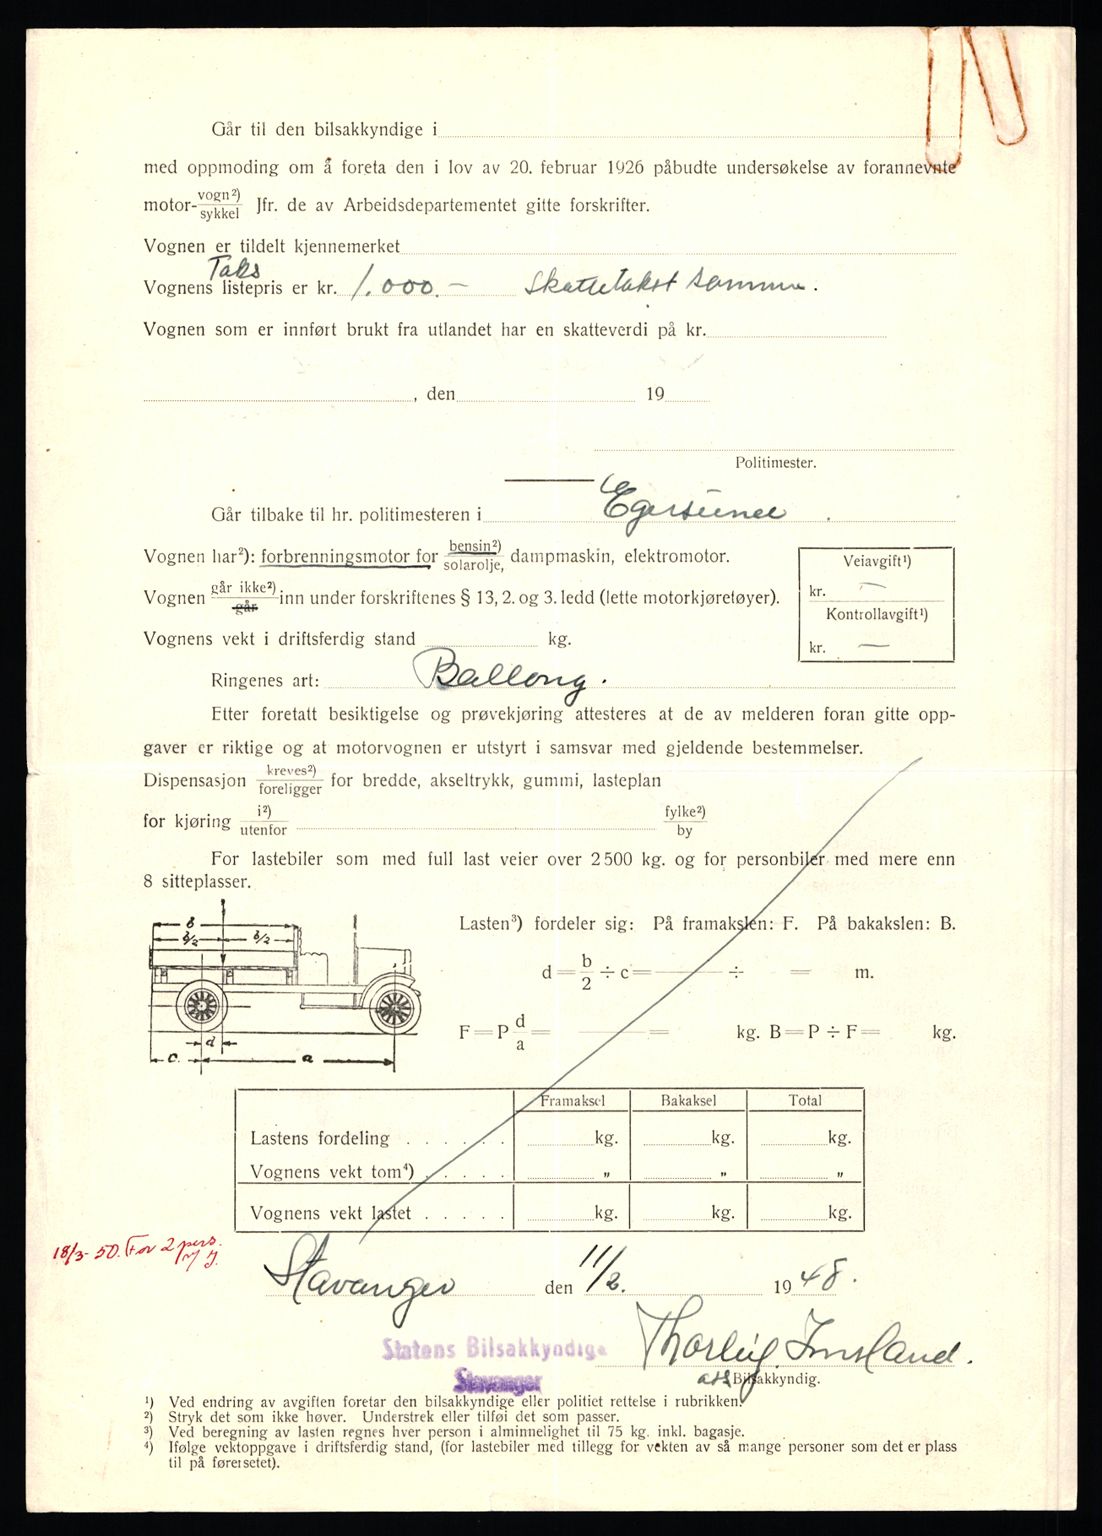 Går til den bilsakkyndige i
med oppmoding om å foreta den i lov av 20. februar 1926 påbudte undersøkelse av forannevnte
motor- vogn²) / sykkel Jfr. de av Arbeidsdepartementet gitte forskrifter.
Vognen er tildelt kjennemerket
Taks
Vognens listepris er kr. 1.000.— Skattetakst samme.
Vognen som er innført brukt fra utlandet har en skatteverdi på kr.
, den 19
Politimester.
Går tilbake til hr. politimesteren i Egersund.
Vognen har²): forbrenningsmotor for bensin²) / solarolje, dampmaskin, elektromotor.
Vognen går ikke²) / går inn under forskriftenes § 13, 2. og 3. ledd (lette motorkjøretøyer).
Veiavgift¹)
kr. —
Kontrollavgift¹)
kr. —
Vognens vekt i driftsferdig stand kg.
Ringenes art: Ballong.
Etter foretatt besiktigelse og prøvekjøring attesteres at de av melderen foran gitte opp-
gaver er riktige og at motorvognen er utstyrt i samsvar med gjeldende bestemmelser.
Dispensasjon kreves²) / foreligger for bredde, akseltrykk, gummi, lasteplan
for kjøring i²) / utenfor fylke²) / by
For lastebiler som med full last veier over 2500 kg. og for personbiler med mere enn
8 sitteplasser.
b
b/2 b/2
d
c. a
Lasten³) fordeler sig: På framakslen: F. På bakakslen: B.
d = b/2 ÷ c = ÷ = m.
F = P d/a = = kg. B = P ÷ F = kg.
Framaksel Bakaksel Total
Lastens fordeling . . . . . . kg. kg. kg.
Vognens vekt tom⁴) . . . . . " " "
Vognens vekt lastet . . . . . kg. kg. kg.
18/3-50. For 2 pers.
Stavanger den 11/2. 1948.
Statens Bilsakkyndige
Stavanger
Thorleif Imsland.
ass Bilsakkyndig.
¹) Ved endring av avgiften foretar den bilsakkyndige eller politiet rettelse i rubrikken.
²) Stryk det som ikke høver. Understrek eller tilføi det som passer.
³) Ved beregning av lasten regnes hver person i alminnelighet til 75 kg. inkl. bagasje.
⁴) Ifølge vektoppgave i driftsferdig stand, (for lastebiler med tillegg for vekten av så mange personer som det er plass
til på førersetet).